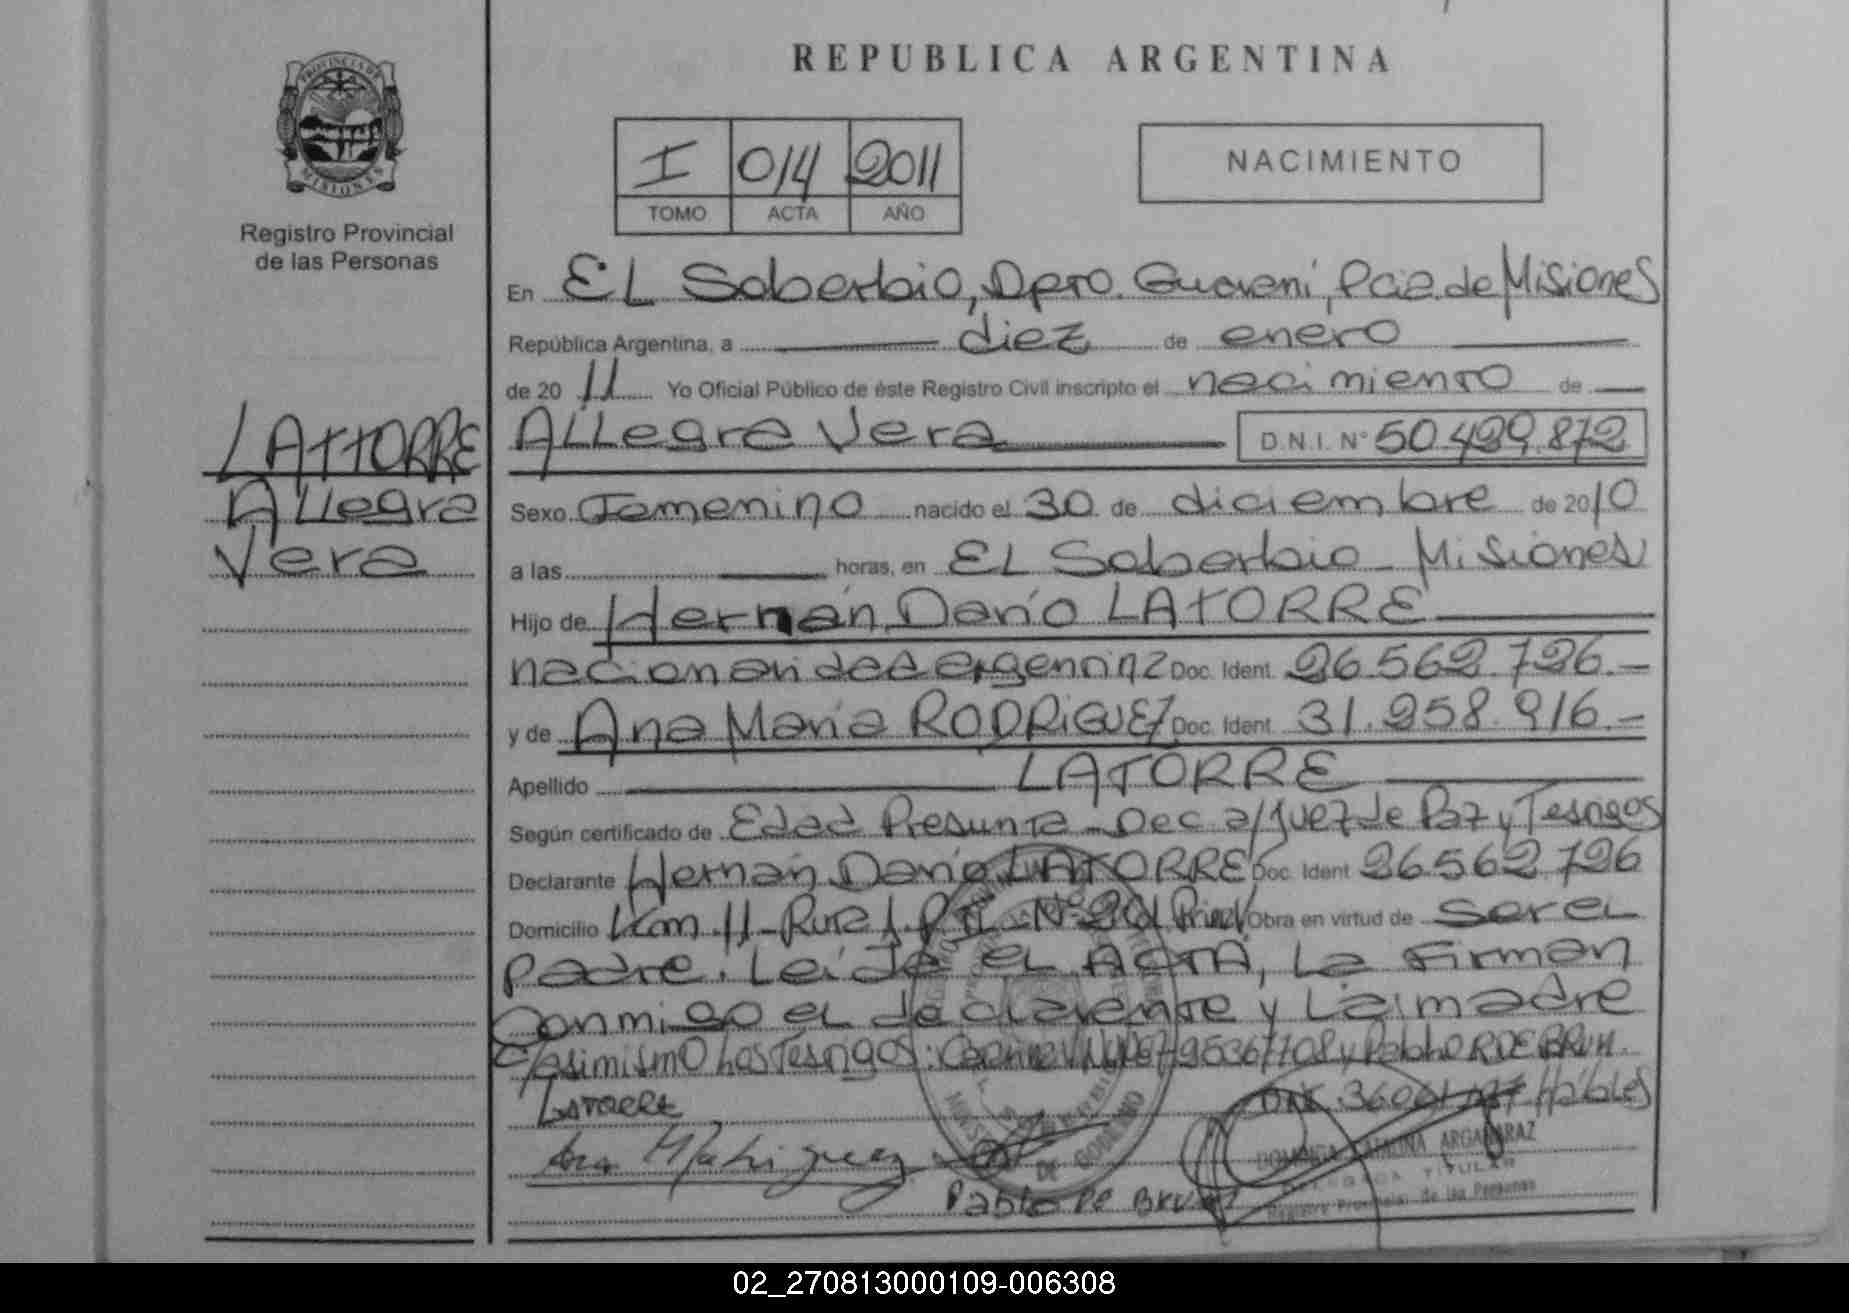 REPUBLICA ARGENTINA
PROVINCIA DE
MISIONES
Registro Provincial
de las Personas
I 014 2011
TOMO ACTA AÑO
NACIMIENTO
En EL Soberbio, Dpto. Guarani, Pcia. de Misiones
República Argentina, a diez de enero
de 20 11 Yo Oficial Público de éste Registro Civil inscripto el nacimiento de
ALLegra Vera D.N.I. Nº 50.499.872
LATTORRE
ALLegra
Vera
Sexo Femenino nacido el 30 de diciembre de 2010
a las horas, en EL Soberbio - Misiones
Hijo de Hernán Darío LATORRE
nacionalidad argentina Doc. Ident. 26.562.726.-
y de Ana María RODRIGUEZ Doc. Ident. 31.958.916.-
Apellido LATORRE
Según certificado de Edad Presunta - Dec. a/Juez de Paz y Testigos
Declarante Hernán Darío LATORRE Doc. Ident 26.562.726
Domicilio Km. 11 - Rural Nº Obra en virtud de ser el
padre. Leída el ACTA, La Firman
Conmigo el declarante y La madre
asimismo Los Testigos: Pablo R DE BRUM
Hábiles
LATORRE
Ana
Pablo De
DOMINGA CATALINA ARGAÑARAZ
TITULAR
Registro Provincial de las Personas
DE GOBIERNO
02_270813000109-006308